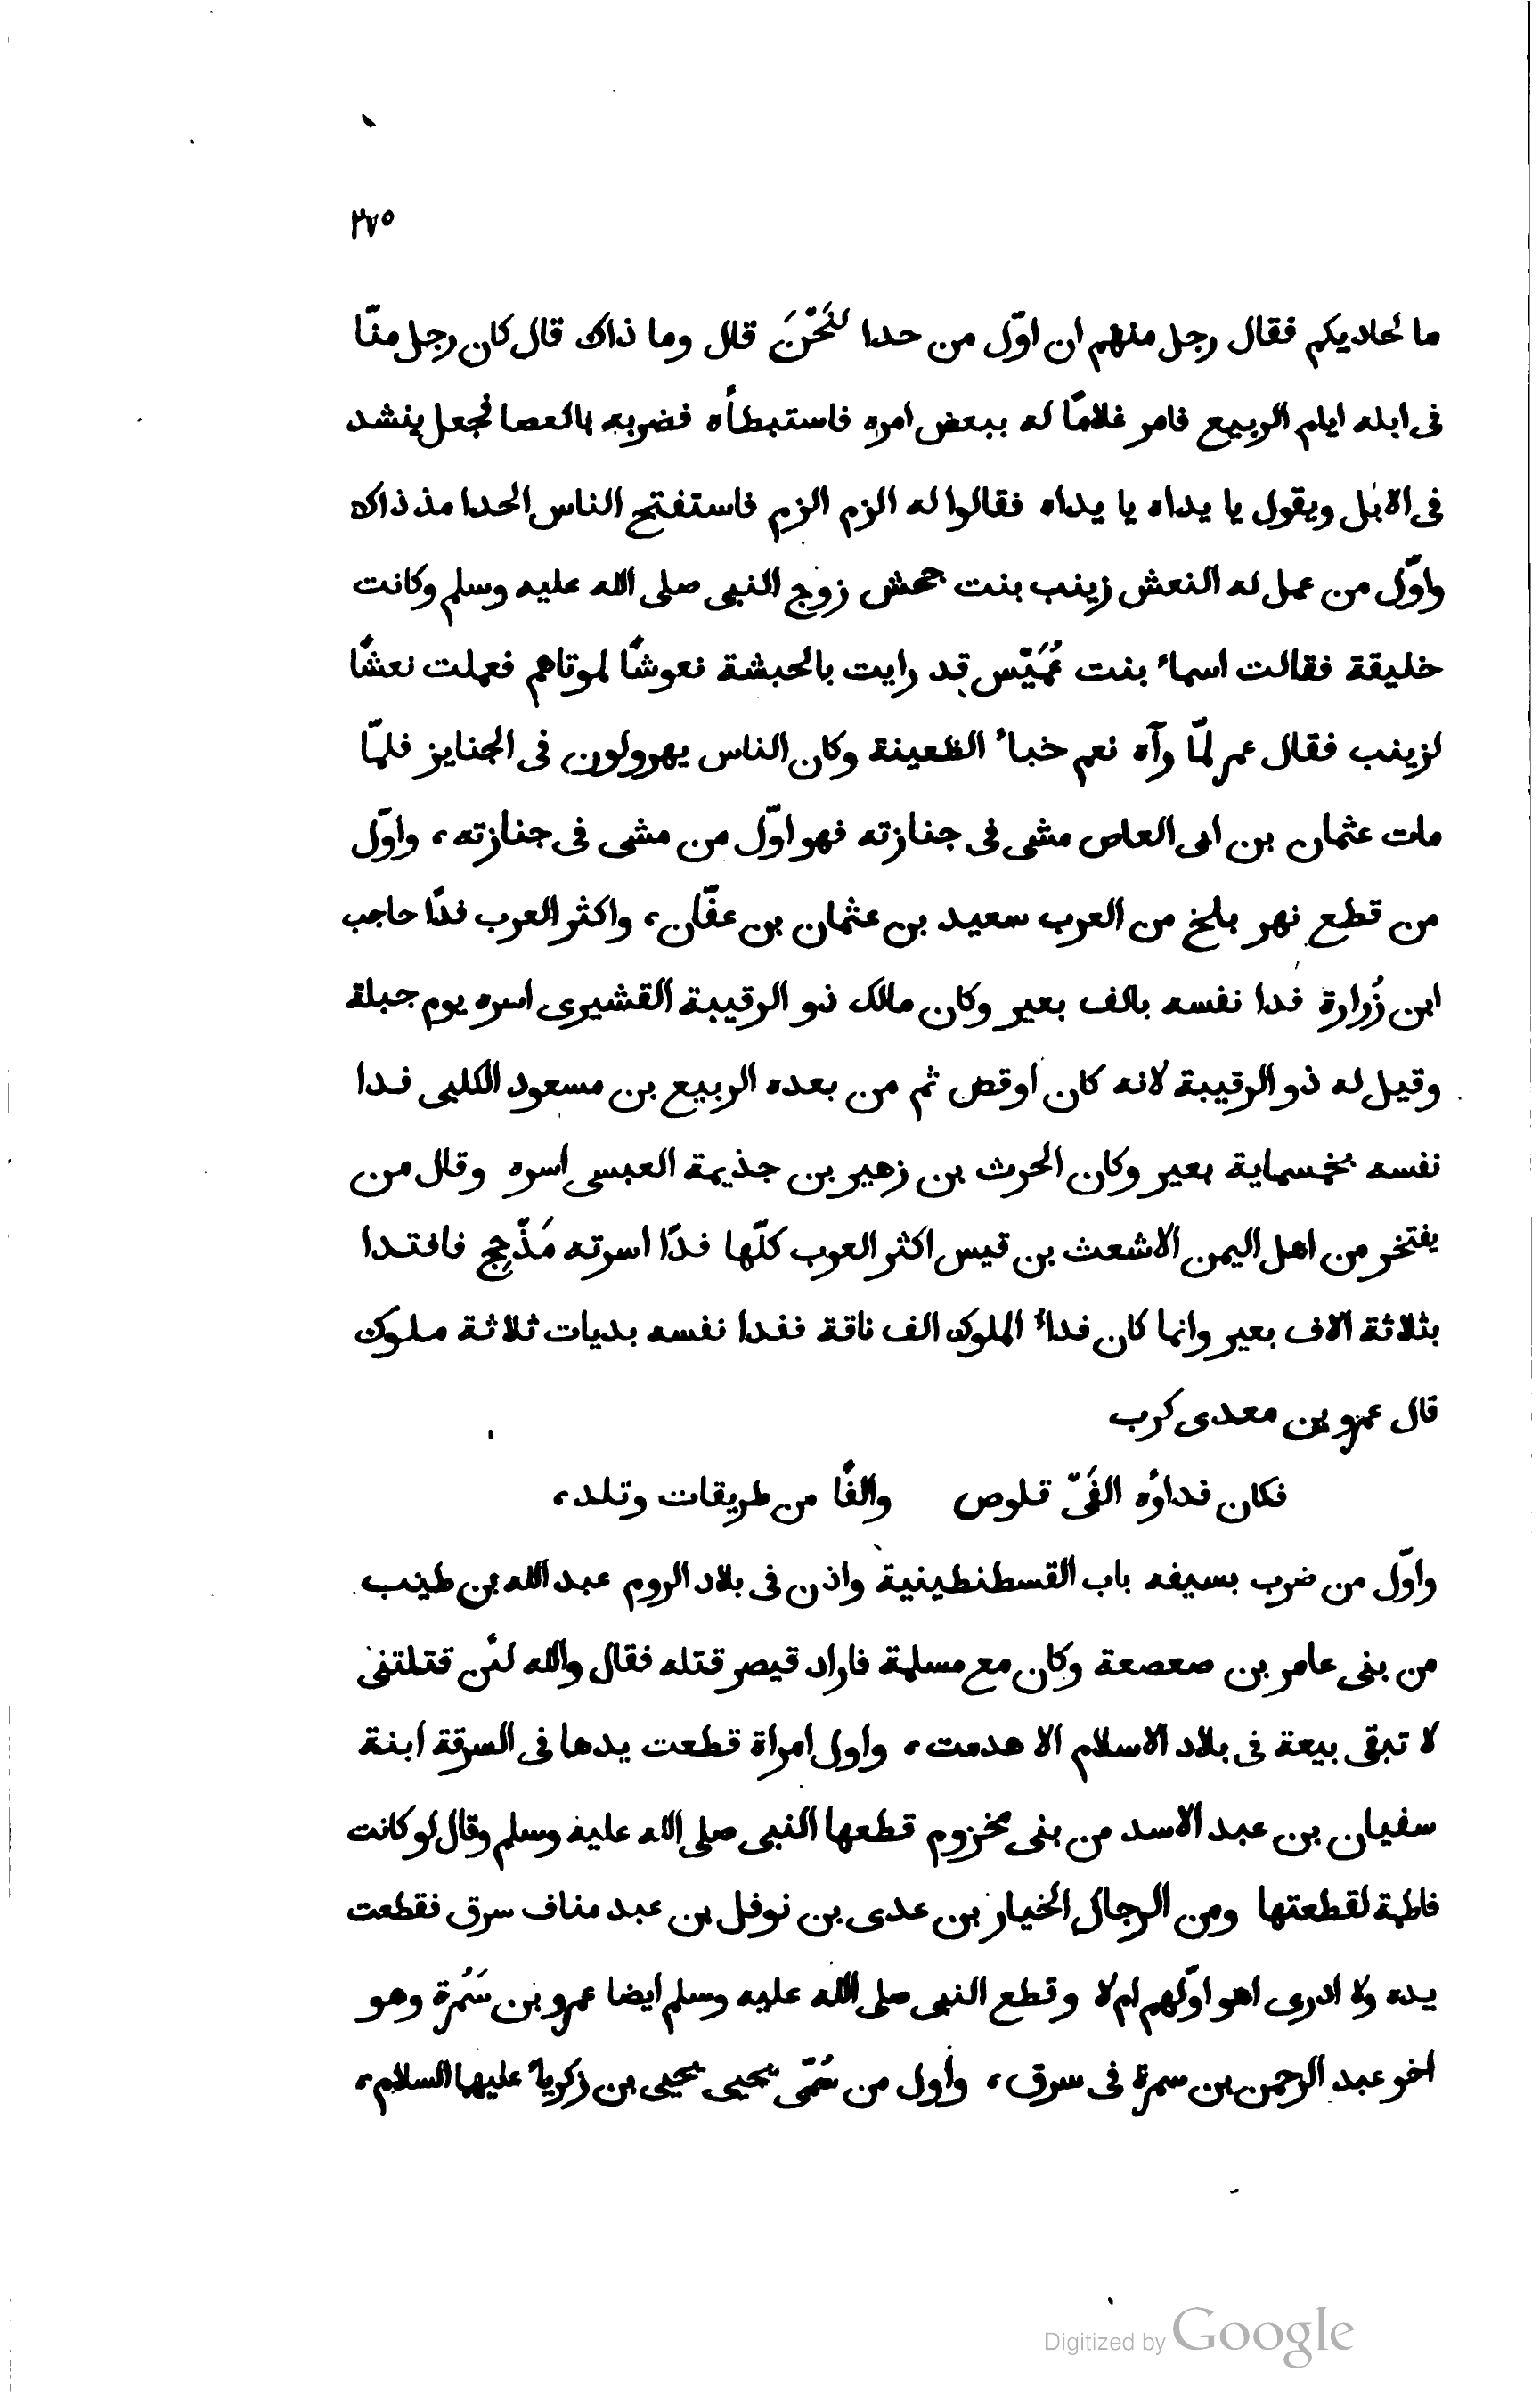 ٢٧٥
ما لحاديكم فقال رجل منهم ان اوّل من حدا لَنَحْنَ قال وما ذاك قال كان رجل منّا
فى ابله ايام الربيع فامر غلامًا له ببعض امره فاستبطأه فضربه بالعصا فجعل ينشد
فى الابل ويقول يا يداه يا يداه فقالوا له الزم الزم فاستفتح الناس الحدا مذ ذاك
واوّل من عمل له النعش زينب بنت جحش زوج النبى صلى الله عليه وسلم وكانت
خليقة فقالت اسماء بنت عُمَيْس قد رايت بالحبشة نعوشًا لموتاهم فعملت نعشًا
لزينب فقال عمر لمّا رآه نعم خباء الظعينة وكان الناس يهرولون فى الجنايز فلمّا
مات عثمان بن ابى العاص مشى فى جنازته فهو اوّل من مشى فى جنازته، واوّل
من قطع نهر بلخ من العرب سعيد بن عثمان بن عفّان، واكثر العرب فدًا حاجب
ابن زُرارة فدا نفسه بالف بعير وكان مالك ذو الرقيبة القشيرى اسره يوم جبلة
وقيل له ذو الرقيبة لانه كان اوقص ثم من بعده الربيع بن مسعود الكلبى فدا
نفسه بخمسماية بعير وكان الحرث بن زهير بن جذيمة العبسى اسره وقال من
يفتخر من اهل اليمن الاشعث بن قيس اكثر العرب كلّها فدًا اسرته مَذْحِج فافتدا
بثلاثة الاف بعير وانما كان فداءُ الملوك الف ناقة ففدا نفسه بديات ثلاثة ملوك
قال عمرو بن معدى كرب
فكان فداؤه الفَىْ قلوص والفًا من طريقات وتلد،
واوّل من ضرب بسيفه باب القسطنطينية واذن فى بلاد الروم عبد الله بن طيب
من بنى عامر بن صعصعة وكان مع مسلمة فاراد قيصر قتله فقال والله لئن قتلتنى
لا تبقى بيعة فى بلاد الاسلام الا هدمت، واول امراة قطعت يدها فى السرقة ابنة
سفيان بن عبد الاسد من بنى مخزوم قطعها النبى صلى الله عليه وسلم وقال لو كانت
فاطمة لقطعتها ومن الرجال الخيار بن عدى بن نوفل بن عبد مناف سرق فقطعت
يده ولا ادرى اهو اوّلهم ام لا وقطع النبى صلى الله عليه وسلم ايضا عمرو بن سَمُرة وهو
اخو عبد الرحمن بن سمرة فى سرق، واول من سُمّى يحيى يحيى بن زكرياءَ عليهما السلام،
Digitized by Google